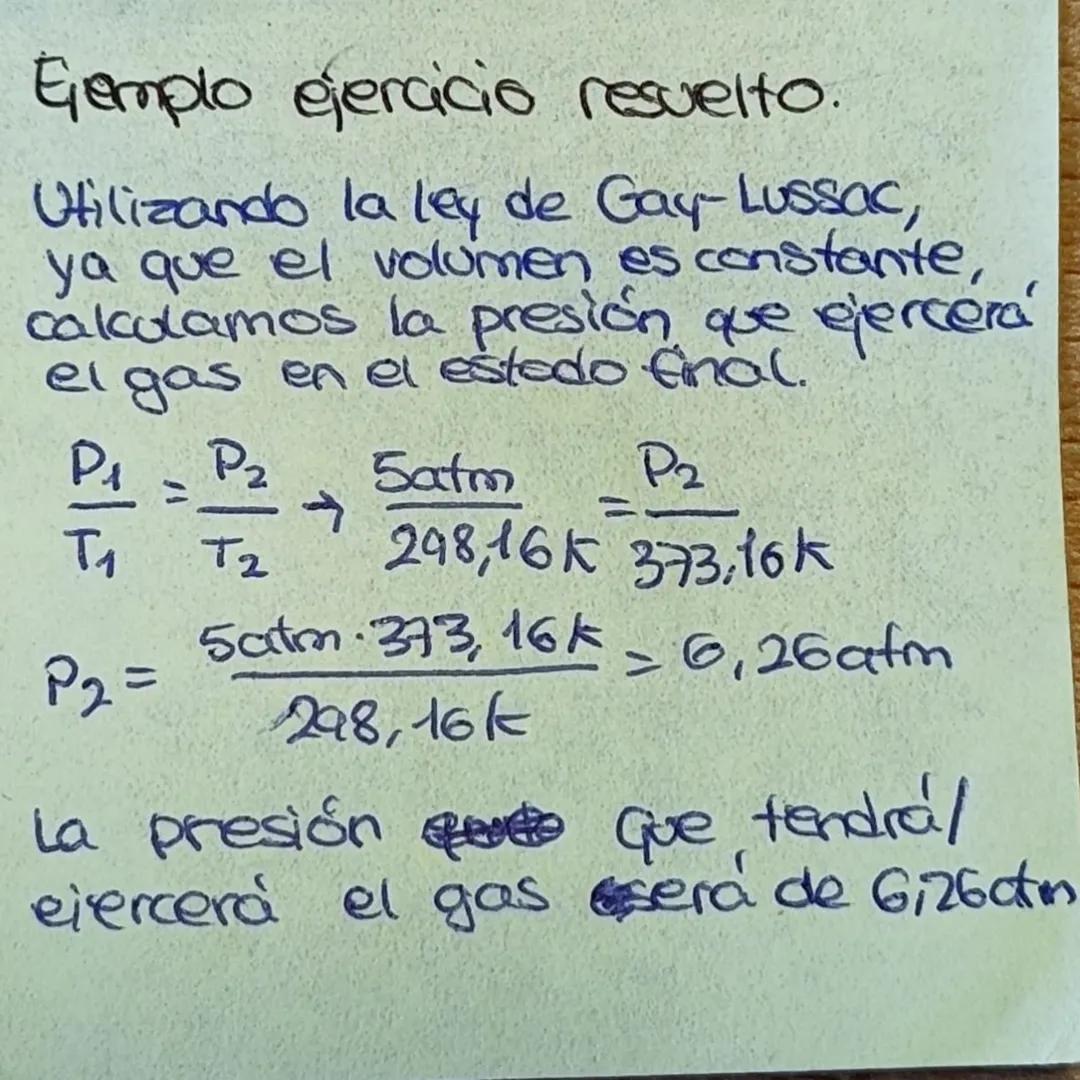 Ejemplo ejercicio resuelto.
Utilizando la ley de Gay-Lussac,
ya que el volumen es constante,
calculamos la presión que ejercerá
el gas en el estado final.
P1/T1 = P2/T2 → 5atm/298,16K = P2/373,16K
P2 = 5atm·373,16K/298,16K = 6,26atm
La presión que tendrá/
ejercerá el gas será de 6,26atm